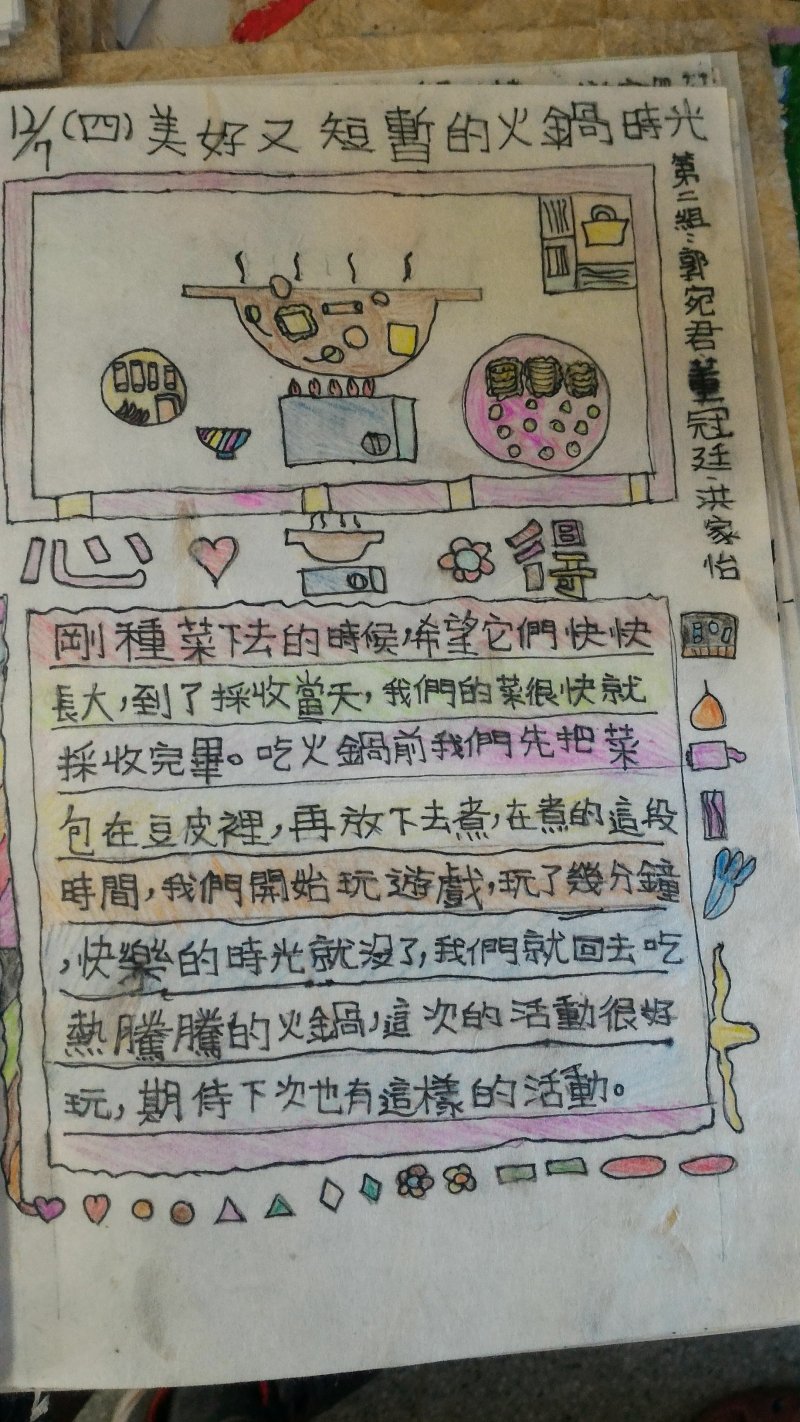 12/7(四)美好又短暫的火鍋時光
第二組:郭宛君董冠廷、洪家怡
心得
剛種菜下去的時候,希望它們快快
長大,到了採收當天,我們的菜很快就
採收完畢。吃火鍋前我們先把菜
包在豆皮裡,再放下去煮,在煮的這段
時間,我們開始玩遊戲,玩了幾分鐘
,快樂的時光就沒了,我們就回去吃
熱騰騰的火鍋,這次的活動很好
玩,期待下次也有這樣的活動。